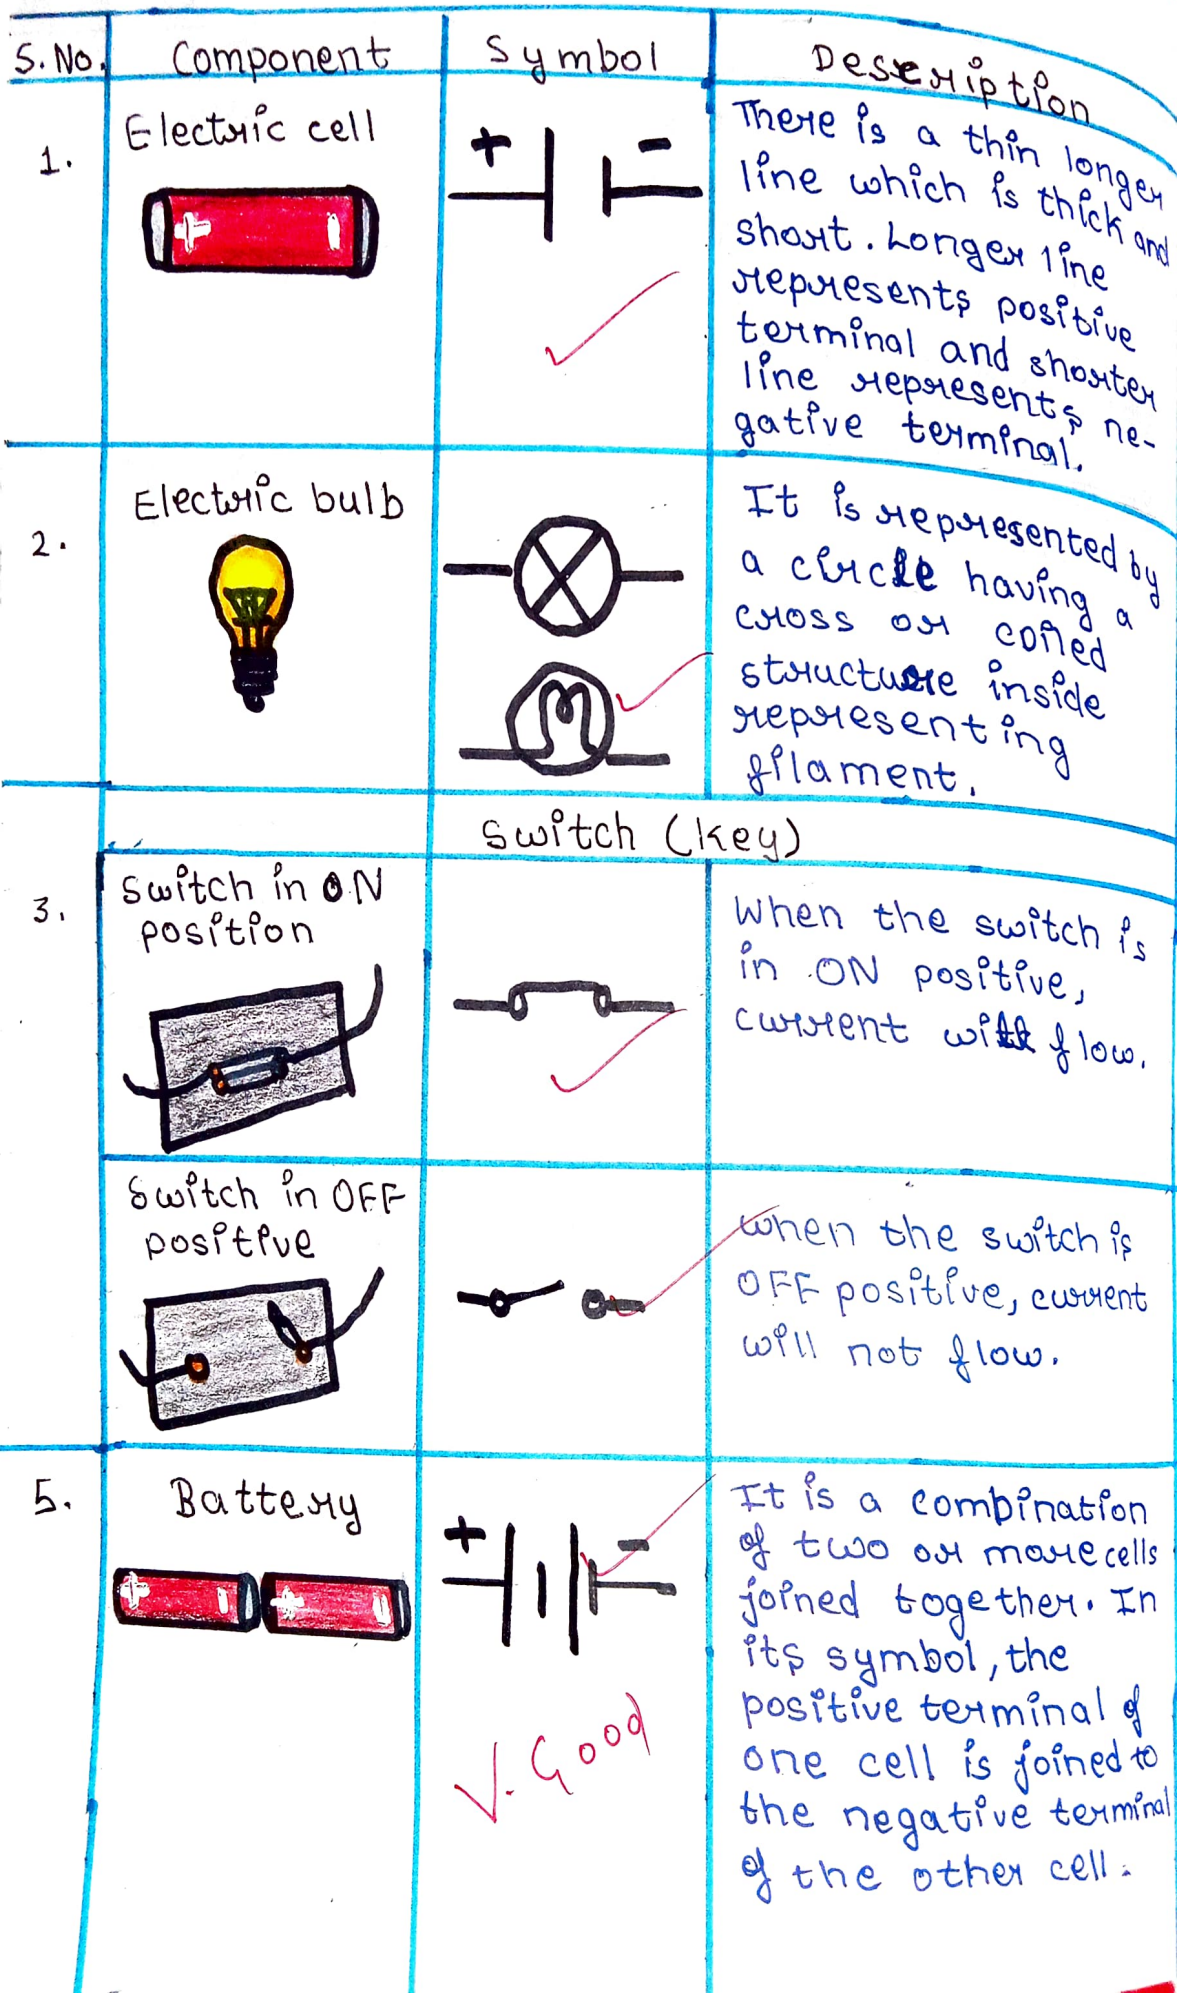 S. No. Component Symbol Description
1.
Electric cell
+ -
There is a thin longer
line which is thick and
short. Longer line
represents positive
terminal and shorter
line represents ne-
gative terminal.
2.
Electric bulb
It is represented by
a circle having a
cross or coiled
structure inside
representing
filament.
Switch (key)
3.
Switch in ON
position
When the switch is
in ON positive,
current will flow.
Switch in OFF
positive
When the switch is
OFF positive, current
will not flow.
5.
Battery
+ -
It is a combination
of two or more cells
joined together. In
its symbol, the
positive terminal of
one cell is joined to
the negative terminal
of the other cell.
V. Good